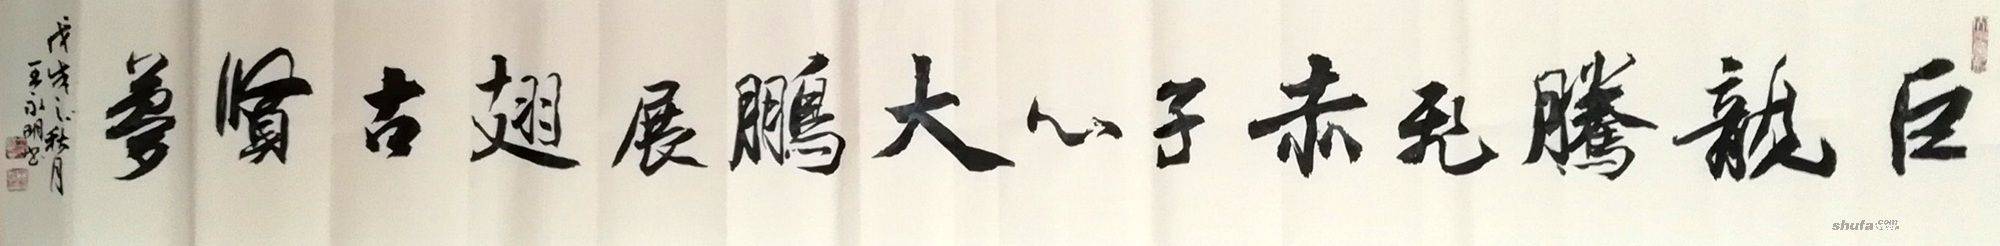 巨龍騰飛赤子心大鵬展翅古賢夢
戊戌之秋月
王永明書
shufa.com